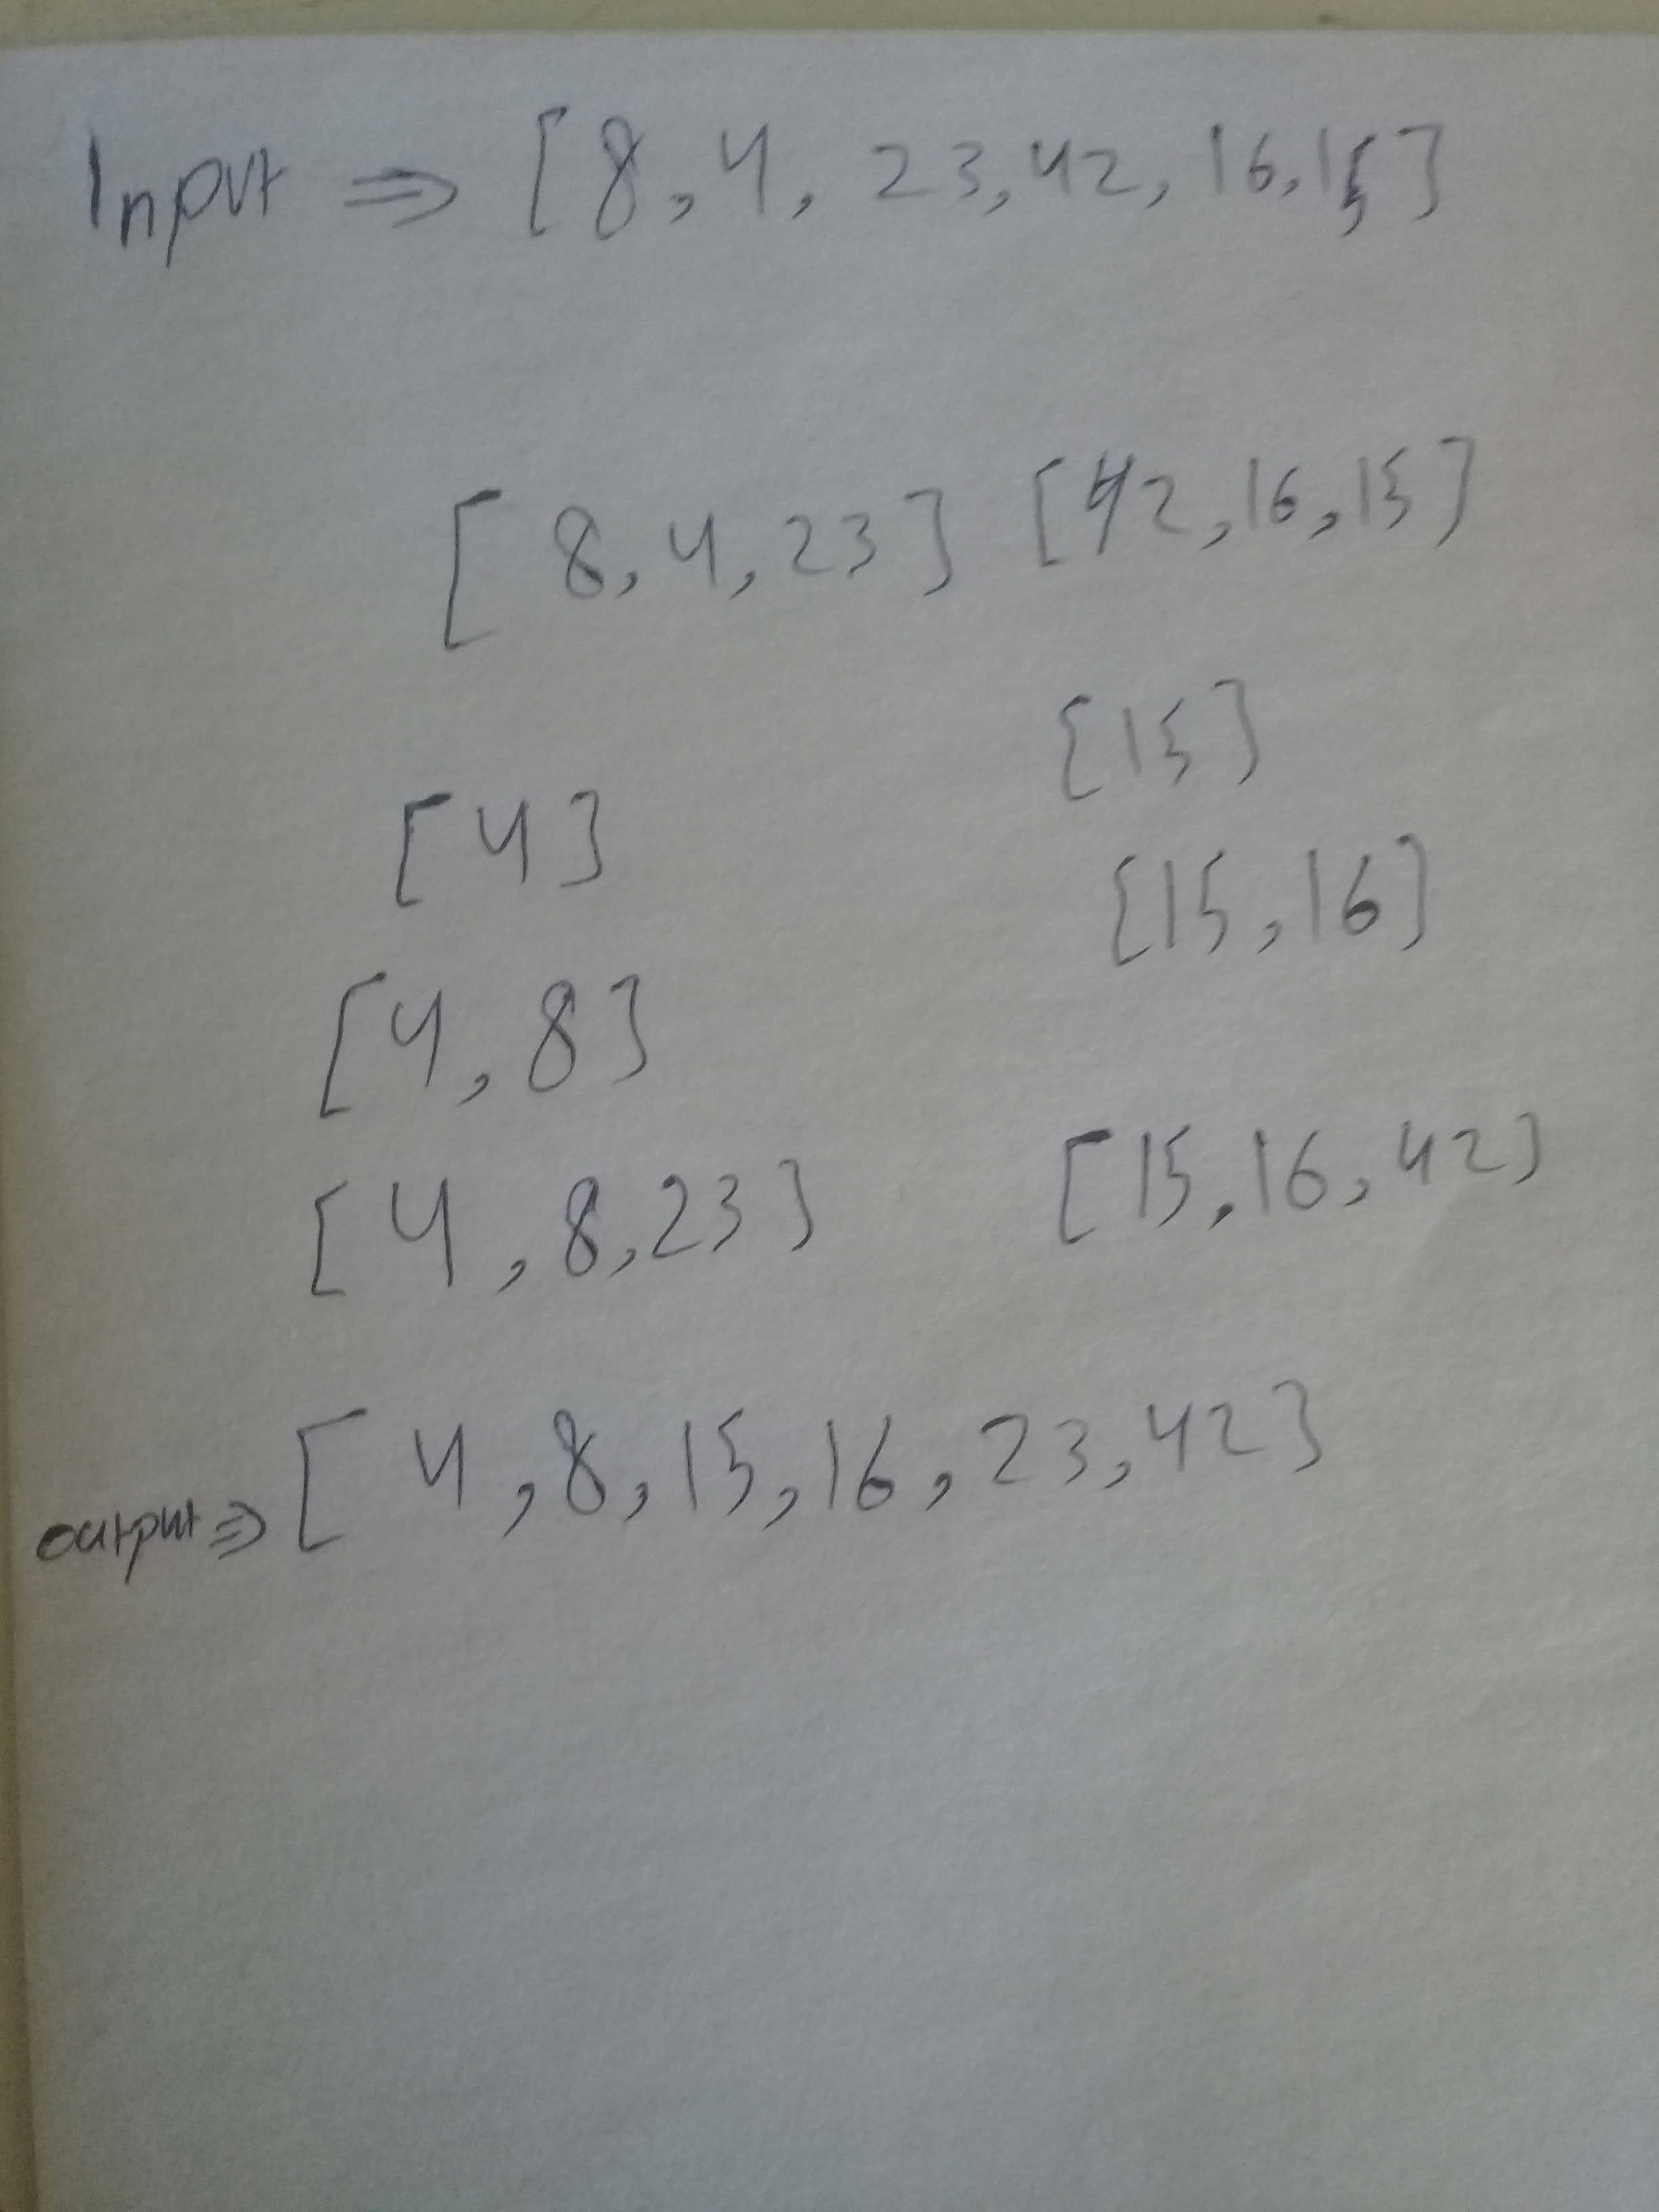 Input ⇒ [8,4, 23,42, 16,15]
[ 8,4,23] [42,16,15]
[15]
[4]
[15,16]
[4,8]
[15,16,42]
[4,8,23]
output⇒ [ 4,8,15,16,23,42]